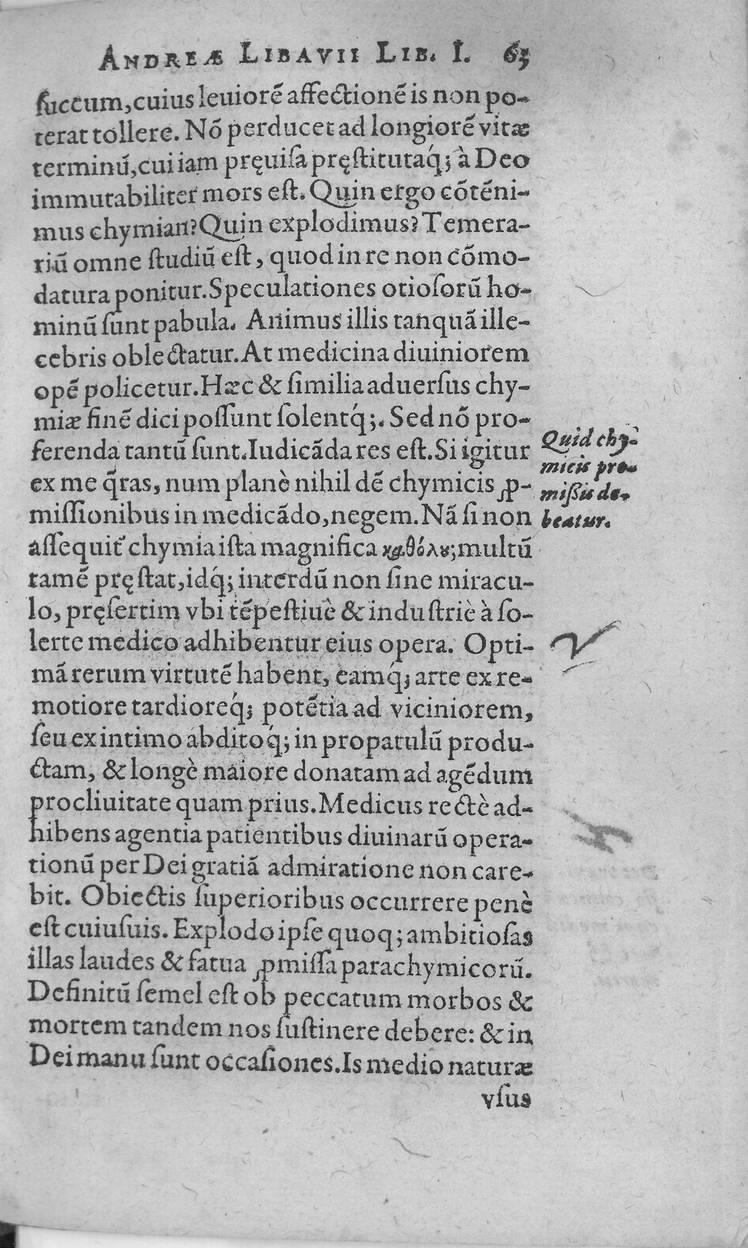 ANDREÆ LIBAVII LIB. I. 63
ſuccum,cuius leuiorẽ affectionẽ is non po-
terat tollere. Nõ perducet ad longiorẽ vitæ
terminũ,cui iam pręuiſa pręſtitutaq́; à Deo
immutabiliter mors eſt. Quin ergo cõtẽni-
mus chymian?Quin explodimus? Temera-
riũ omne ſtudiũ eſt, quod in re non cõmo-
datura ponitur.Speculationes otioſorũ ho-
minũ ſunt pabula. Animus illis tanquã ille-
cebris oblectatur.At medicina diuiniorem
opẽ policetur.Hæc & ſimilia aduerſus chy-
miæ finẽ dici poſſunt ſolentq́;. Sed nõ pro-
ferenda tantũ ſunt.Iudicãda res eſt.Si igitur
ex me q̃ras, num planè nihil dẽ chymicis ꝓ-
miſſionibus in medicãdo,negem.Nã ſi non
aſſequit᷑ chymia iſta magnifica καθόλου;multũ
tamẽ pręſtat,idq́; interdũ non ſine miracu-
lo, pręſertim vbi tẽpeſtiuè & induſtriè à ſo-
lerte medico adhibentur eius opera. Opti-
mã rerum virtutẽ habent, eamq́; arte ex re-
motiore tardioreq́; potẽtia ad viciniorem,
ſeu ex intimo abditoq́; in propatulũ produ-
ctam, & longè maiore donatam ad agẽdum
procliuitate quam prius.Medicus rectè ad-
hibens agentia patientibus diuinarũ opera-
tionũ per Dei gratiã admiratione non care-
bit. Obiectis ſuperioribus occurrere penè
eſt cuiuſuis. Explodo ipſe quoq; ambitioſas
illas laudes & fatua ꝓmiſſa parachymicorũ.
Definitũ ſemel eſt ob peccatum morbos &
mortem tandem nos ſuſtinere debere: & in
Dei manu ſunt occaſiones.Is medio naturæ
vſus
Quid chy-
micis pro-
mißis de-
beatur.